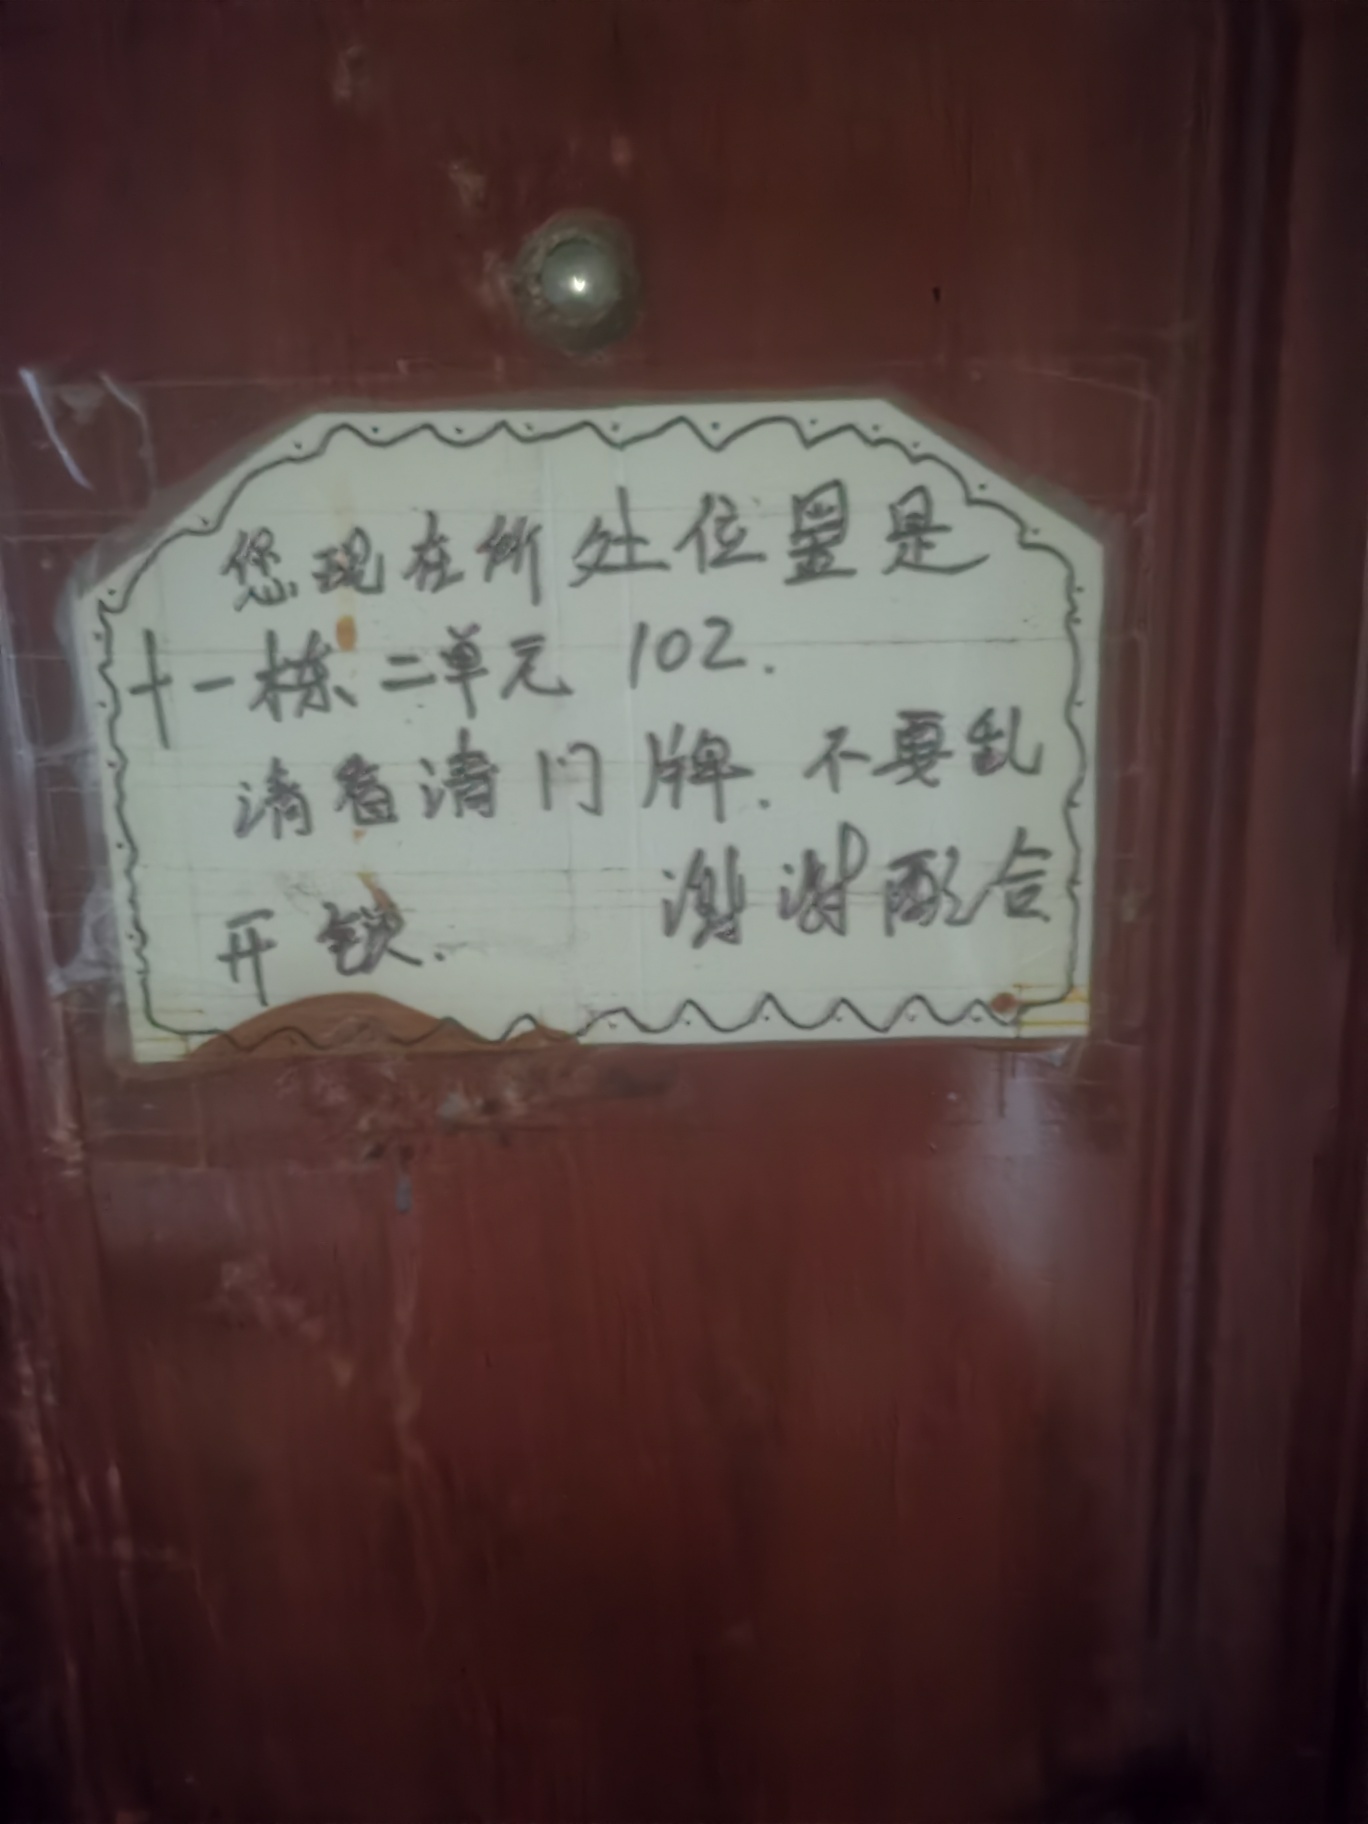 您现在所处位置是
十一栋二单元 102.
请看清门牌.不要乱
开锁. 谢谢配合